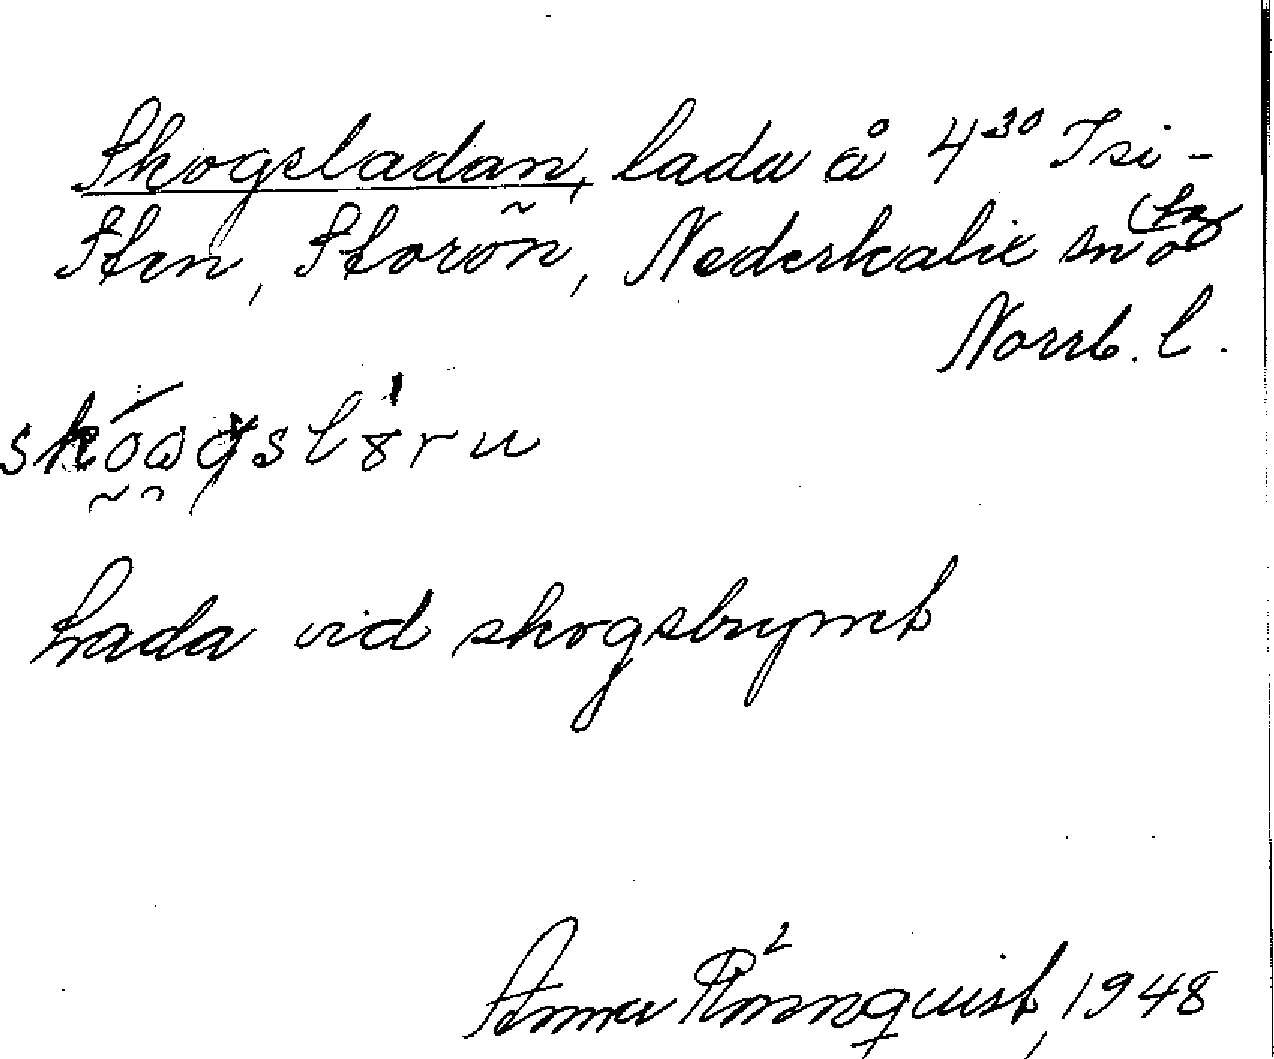 Skogsladan, lada å 4³⁰ Isi-
sten, Storön, Nederkalix sn
Norrb. l.
Lada vid skogsbrynet
Anna Rönnquist, 1948